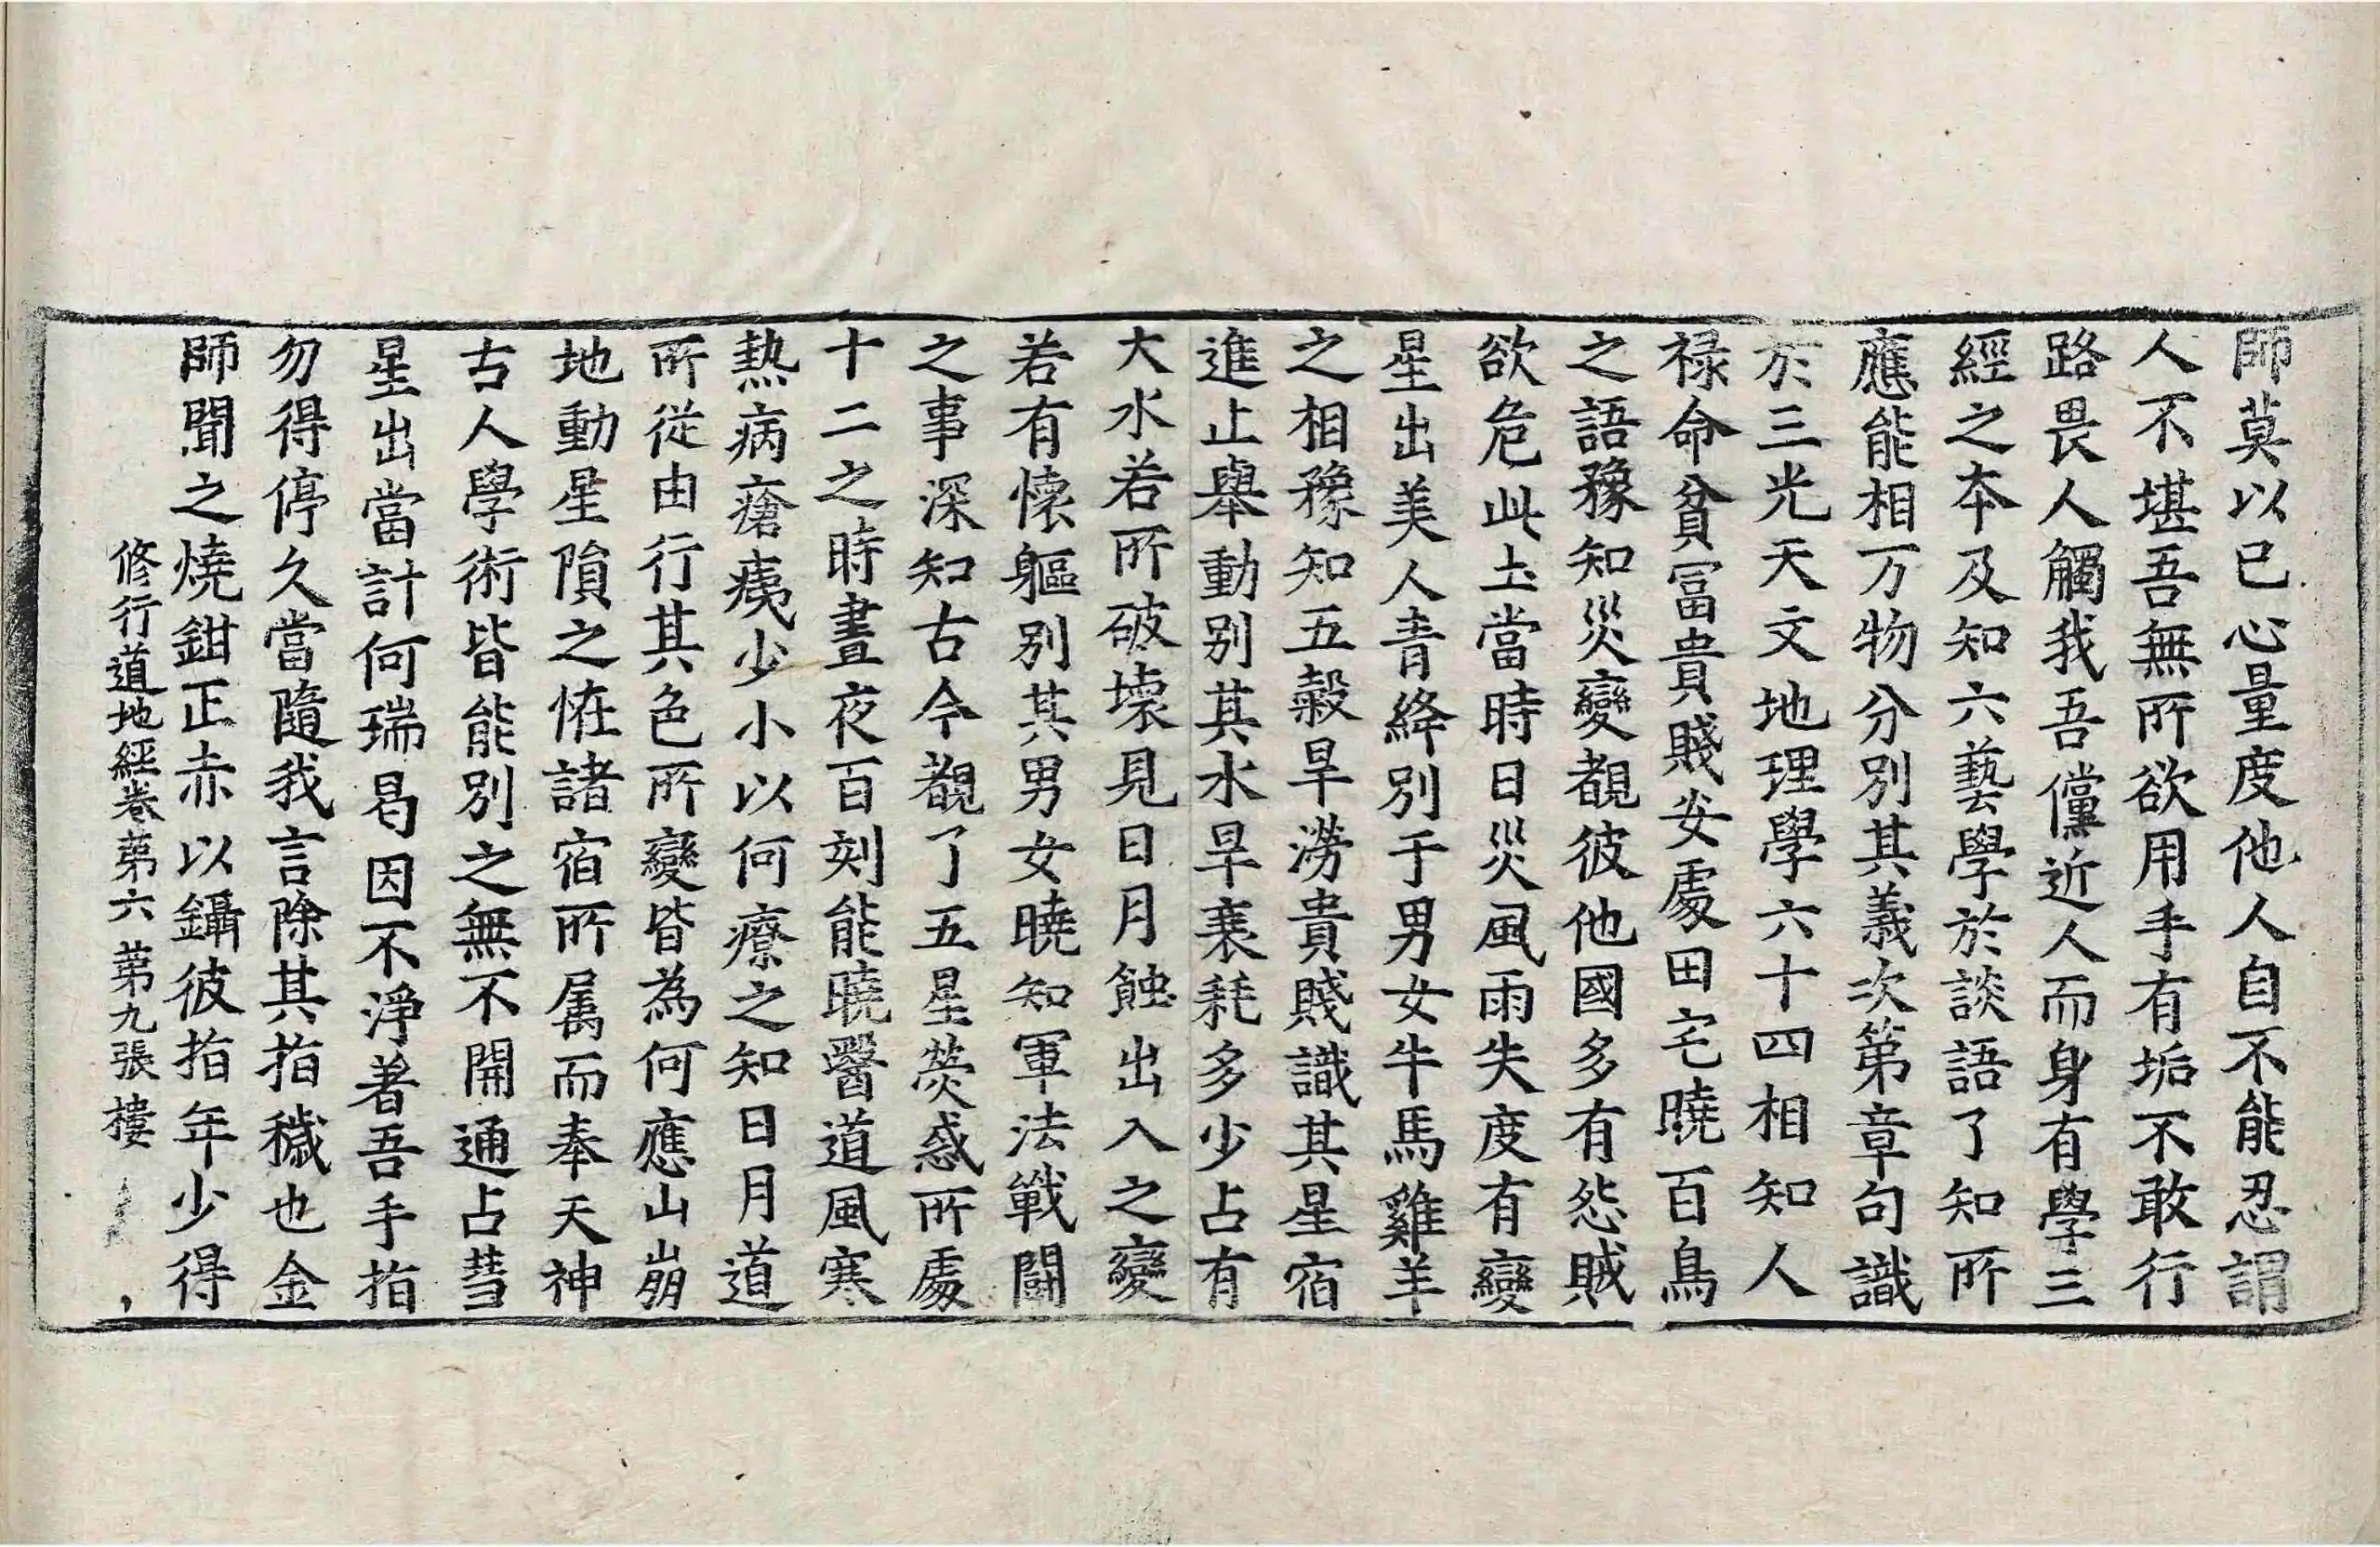 師莫以已心量度他人自不能忍謂
人不堪吾無所欲用手有垢不敢行
路畏人觸我吾儻近人而身有學三
經之本及知六藝學於談語了知所
應能相万物分別其義次第章句識
於三光天文地理學六十四相知人
祿命貧冨貴賤安處田宅曉百鳥
之語豫知災變覩彼他國多有怨賊
欲危此土當時日災風雨失度有變
星出美人青絳別于男女牛馬雞羊
之相豫知五穀旱澇貴賤識其星宿
進止舉動別其水旱衰耗多少占有
大水若所破壞見日月蝕出入之變
若有懷軀別其男女曉知軍法戰鬪
之事深知古今覩了五星熒惑所處
十二之時晝夜百刻能曉醫道風寒
熱病瘡痍少小以何療之知日月道
所從由行其色所變皆為何應山崩
地動星隕之恠諸宿所属而奉天神
古人學術皆能別之無不開通占彗
星出當計何瑞曷因不淨著吾手指
勿得停久當隨我言除其指穢也金
師聞之燒鉗正赤以鑷彼指年少得
修行道地經卷第六 第九張 樓